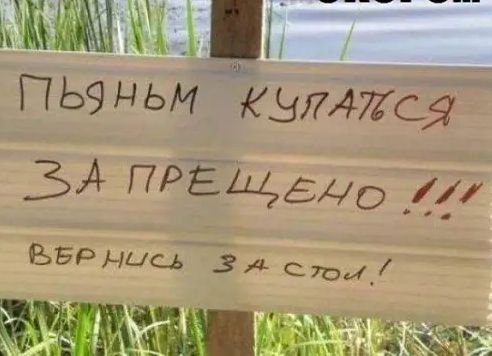 ПЬЯНЫМ КУПАТЬСЯ
ЗАПРЕЩЕНО!!!
ВЕРНИСЬ ЗА СТОЛ!